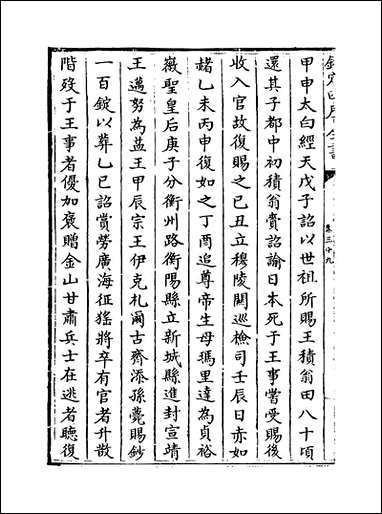 欽定四庫全書
卷三十九
甲申太白經天戊子詔以世祖所賜王積翁田八十頃
還其子都中初積翁齎詔諭日本死于王事嘗受賜後
收入官故復賜之己丑立穆陵關巡檢司壬辰日赤如
赭乙未丙申復如之丁酉追尊帝生母瑪里達為貞裕
徽聖皇后庚子分衡州路衡陽縣立新城縣進封宣靖
王邁努為益王甲辰宗王伊克札爾古齊添孫薨賜鈔
一百錠以葬乙巳詔賞勞廣海征猺將卒有官者升散
階歿于王事者優加褒贈金山甘肅兵士在逃者聽復